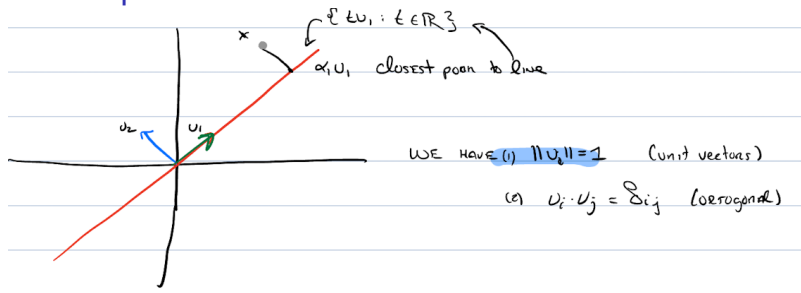 { tu₁ : t ∈ ℝ }
x
α₁u₁ closest point to line
u₂
u₁
WE HAVE (1) ||uᵢ|| = 1 (unit vectors)
(2) uᵢ · uⱼ = δᵢⱼ (ortogonal)